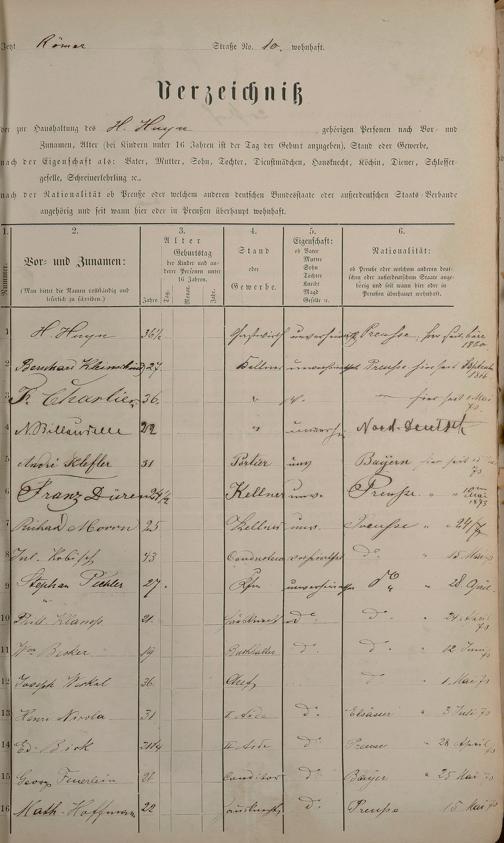 Jetzt Römer Straße No. 10. wohnhaft.
Verzeichniß
der zur Haushaltung des H. Huyn gehörigen Personen nach Vor- und
Zunamen, Alter (bei Kindern unter 16 Jahren ist der Tag der Geburt anzugeben), Stand oder Gewerbe,
nach der Eigenschaft als: Vater, Mutter, Sohn, Tochter, Dienstmädchen, Hausknecht, Köchin, Diener, Schlosser-
geselle, Schreinerlehrling ꝛc.,
nach der Nationalität ob Preuße oder welchem anderen deutschen Bundesstaate oder außerdeutschen Staats-Verbande
angehörig und seit wann hier oder in Preußen überhaupt wohnhaft.
1. 2. 3. 4. 5. 6.
Nummer.
Vor- und Zunamen:
(Man bittet die Namen vollständig und
leserlich zu schreiben.)
Alter
Geburtstag
der Kinder und an-
derer Personen unter
16 Jahren.
Jahre Tag. Monat. Jahr.
Stand
oder
Gewerbe.
Eigenschaft:
ob Vater
Mutter
Sohn
Tochter
Knecht
Magd
Geselle ꝛc.
Nationalität:
ob Preuße oder welchem anderen deut-
schen oder außerdeutschen Staate ange-
hörig und seit wann hier oder in
Preußen überhaupt wohnhaft.
1 H. Huyn 36½ Gastwirth Preusse, hier seit
2 Bernhard 27 Kellner Preusse hier seit
3 Fr. Charlier 36. " hier seit
4 N. 22 " Nord-Deutsch
5 André Klefler 31 Portier unv Bayern hier seit
6 Franz Düren 24½ Kellner unv. Preusse. " 1873
7 Richard 25 Kellner unv. Preusse " 24/7
8 Jul. 43 d° " 15 Mai
9 Stephan Pichler 27. Kfm d° " 28 April.
10 Phil. 21. d° d° " 24 April 73
11 Wm Becker 19 Buchhalter d° d° " 12 Juni 73
12 Joseph 36 Chef d° " 1. Mai 73
13 Henri Nicola 31 I Aide d° " 3 Juli 73
14 Ed. Bick II Aide d° " 28 April 73
15 Georg Feuerlein 21 Conditor d° Bayer " 25 Mai 73
16 Math. Hoffmann 22 d° Preusse 15 Mai 73